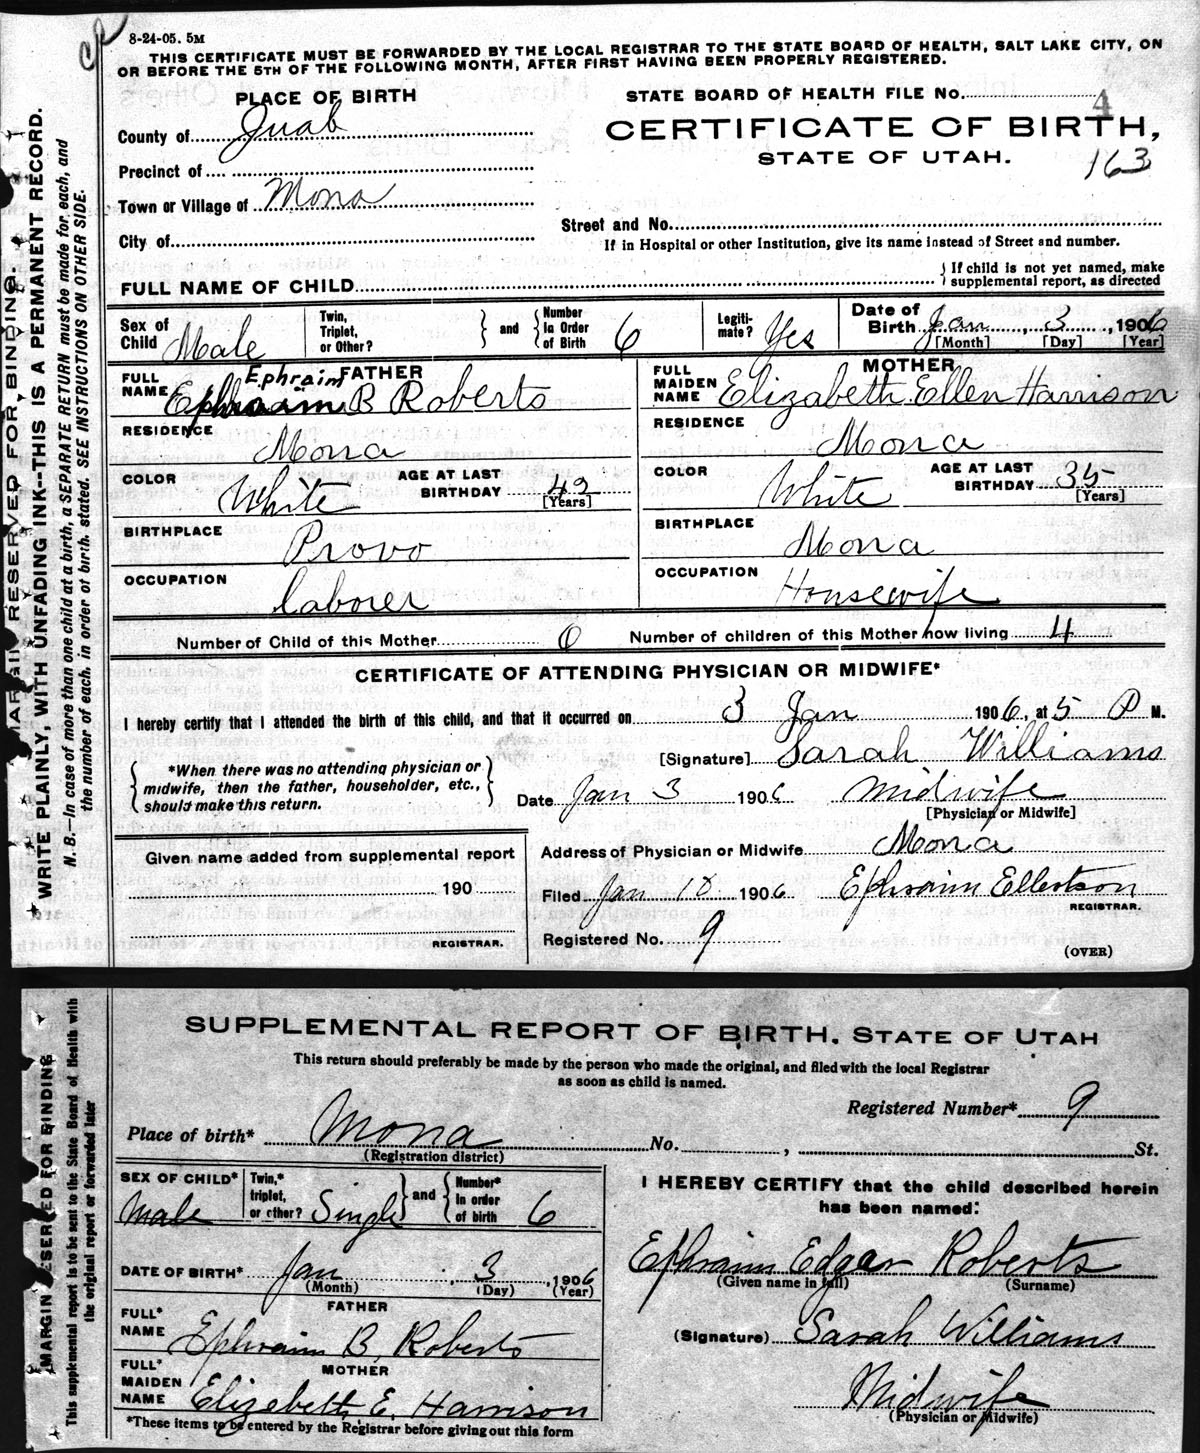 8-24-05. 5M
THIS CERTIFICATE MUST BE FORWARDED BY THE LOCAL REGISTRAR TO THE STATE BOARD OF HEALTH, SALT LAKE CITY, ON
OR BEFORE THE 5TH OF THE FOLLOWING MONTH, AFTER FIRST HAVING BEEN PROPERLY REGISTERED.
PLACE OF BIRTH
STATE BOARD OF HEALTH FILE NO. 4
County of Juab
CERTIFICATE OF BIRTH,
STATE OF UTAH.
163
Precinct of
Town or Village of Mona
Street and No.
City of
If in Hospital or other Institution, give its name instead of Street and number.
FULL NAME OF CHILD
If child is not yet named, make
supplemental report, as directed
Sex of Child Male
Twin, Triplet, or Other?
and Number In Order of Birth 6
Legiti-mate? Yes
Date of Birth Jan, 3, 1906
[Month] [Day] [Year]
FATHER
FULL NAME Ephraim B Roberts
Ephraim
MOTHER
FULL MAIDEN NAME Elizabeth Ellen Harrison
RESIDENCE Mona
RESIDENCE Mona
COLOR White AGE AT LAST BIRTHDAY 42 [Years]
COLOR White AGE AT LAST BIRTHDAY 35 [Years]
BIRTHPLACE Provo
BIRTHPLACE Mona
OCCUPATION Laborer
OCCUPATION Housewife
Number of Child of this Mother 6 Number of children of this Mother now living 4
CERTIFICATE OF ATTENDING PHYSICIAN OR MIDWIFE*
I hereby certify that I attended the birth of this child, and that it occurred on 3 Jan 1906, at 5 P M.
[Signature] Sarah Williams
*When there was no attending physician or
midwife, then the father, householder, etc.,
should make this return.
Date Jan 3 1906 Midwife
[Physician or Midwife]
Given name added from supplemental report
190
REGISTRAR.
Address of Physician or Midwife Mona
Filed Jan 10 1906 Ephraim Ellertson
REGISTRAR.
Registered No. 9
(OVER)
MARGIN RESERVED FOR BINDING.
WRITE PLAINLY, WITH UNFADING INK--THIS IS A PERMANENT RECORD.
N. B.—In case of more than one child at a birth, a SEPARATE RETURN must be made for each, and
the number of each, in order of birth, stated. SEE INSTRUCTIONS ON OTHER SIDE.
SUPPLEMENTAL REPORT OF BIRTH. STATE OF UTAH
This return should preferably be made by the person who made the original, and filed with the local Registrar
as soon as child is named.
Registered Number* 9
Place of birth* Mona No. , St.
(Registration district)
SEX OF CHILD* Male
Twin,* triplet, or other? Single
and Number* In order of birth 6
I HEREBY CERTIFY that the child described herein
has been named:
DATE OF BIRTH* Jan, 3, 1906
(Month) (Day) (Year)
Ephraim Edgar Roberts
(Given name in full) (Surname)
FATHER
FULL* NAME Ephraim B. Roberts
(Signature) Sarah Williams
MOTHER
FULL* MAIDEN NAME Elizabeth E. Harrison
Midwife
(Physician or Midwife)
*These items to be entered by the Registrar before giving out this form
MARGIN RESERVED FOR BINDING
This supplemental report is to be sent to the State Board of Health with
the original report or forwarded later